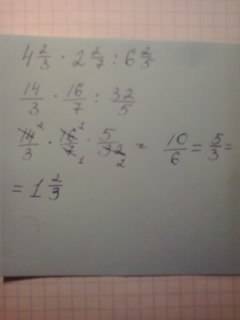 4 2/3 · 2 2/7 : 6 2/3
14/3 · 16/7 : 32/5
14²/3 · 16²/7₁ · 5/32₂ = 10/6 = 5/3 =
= 1 2/3